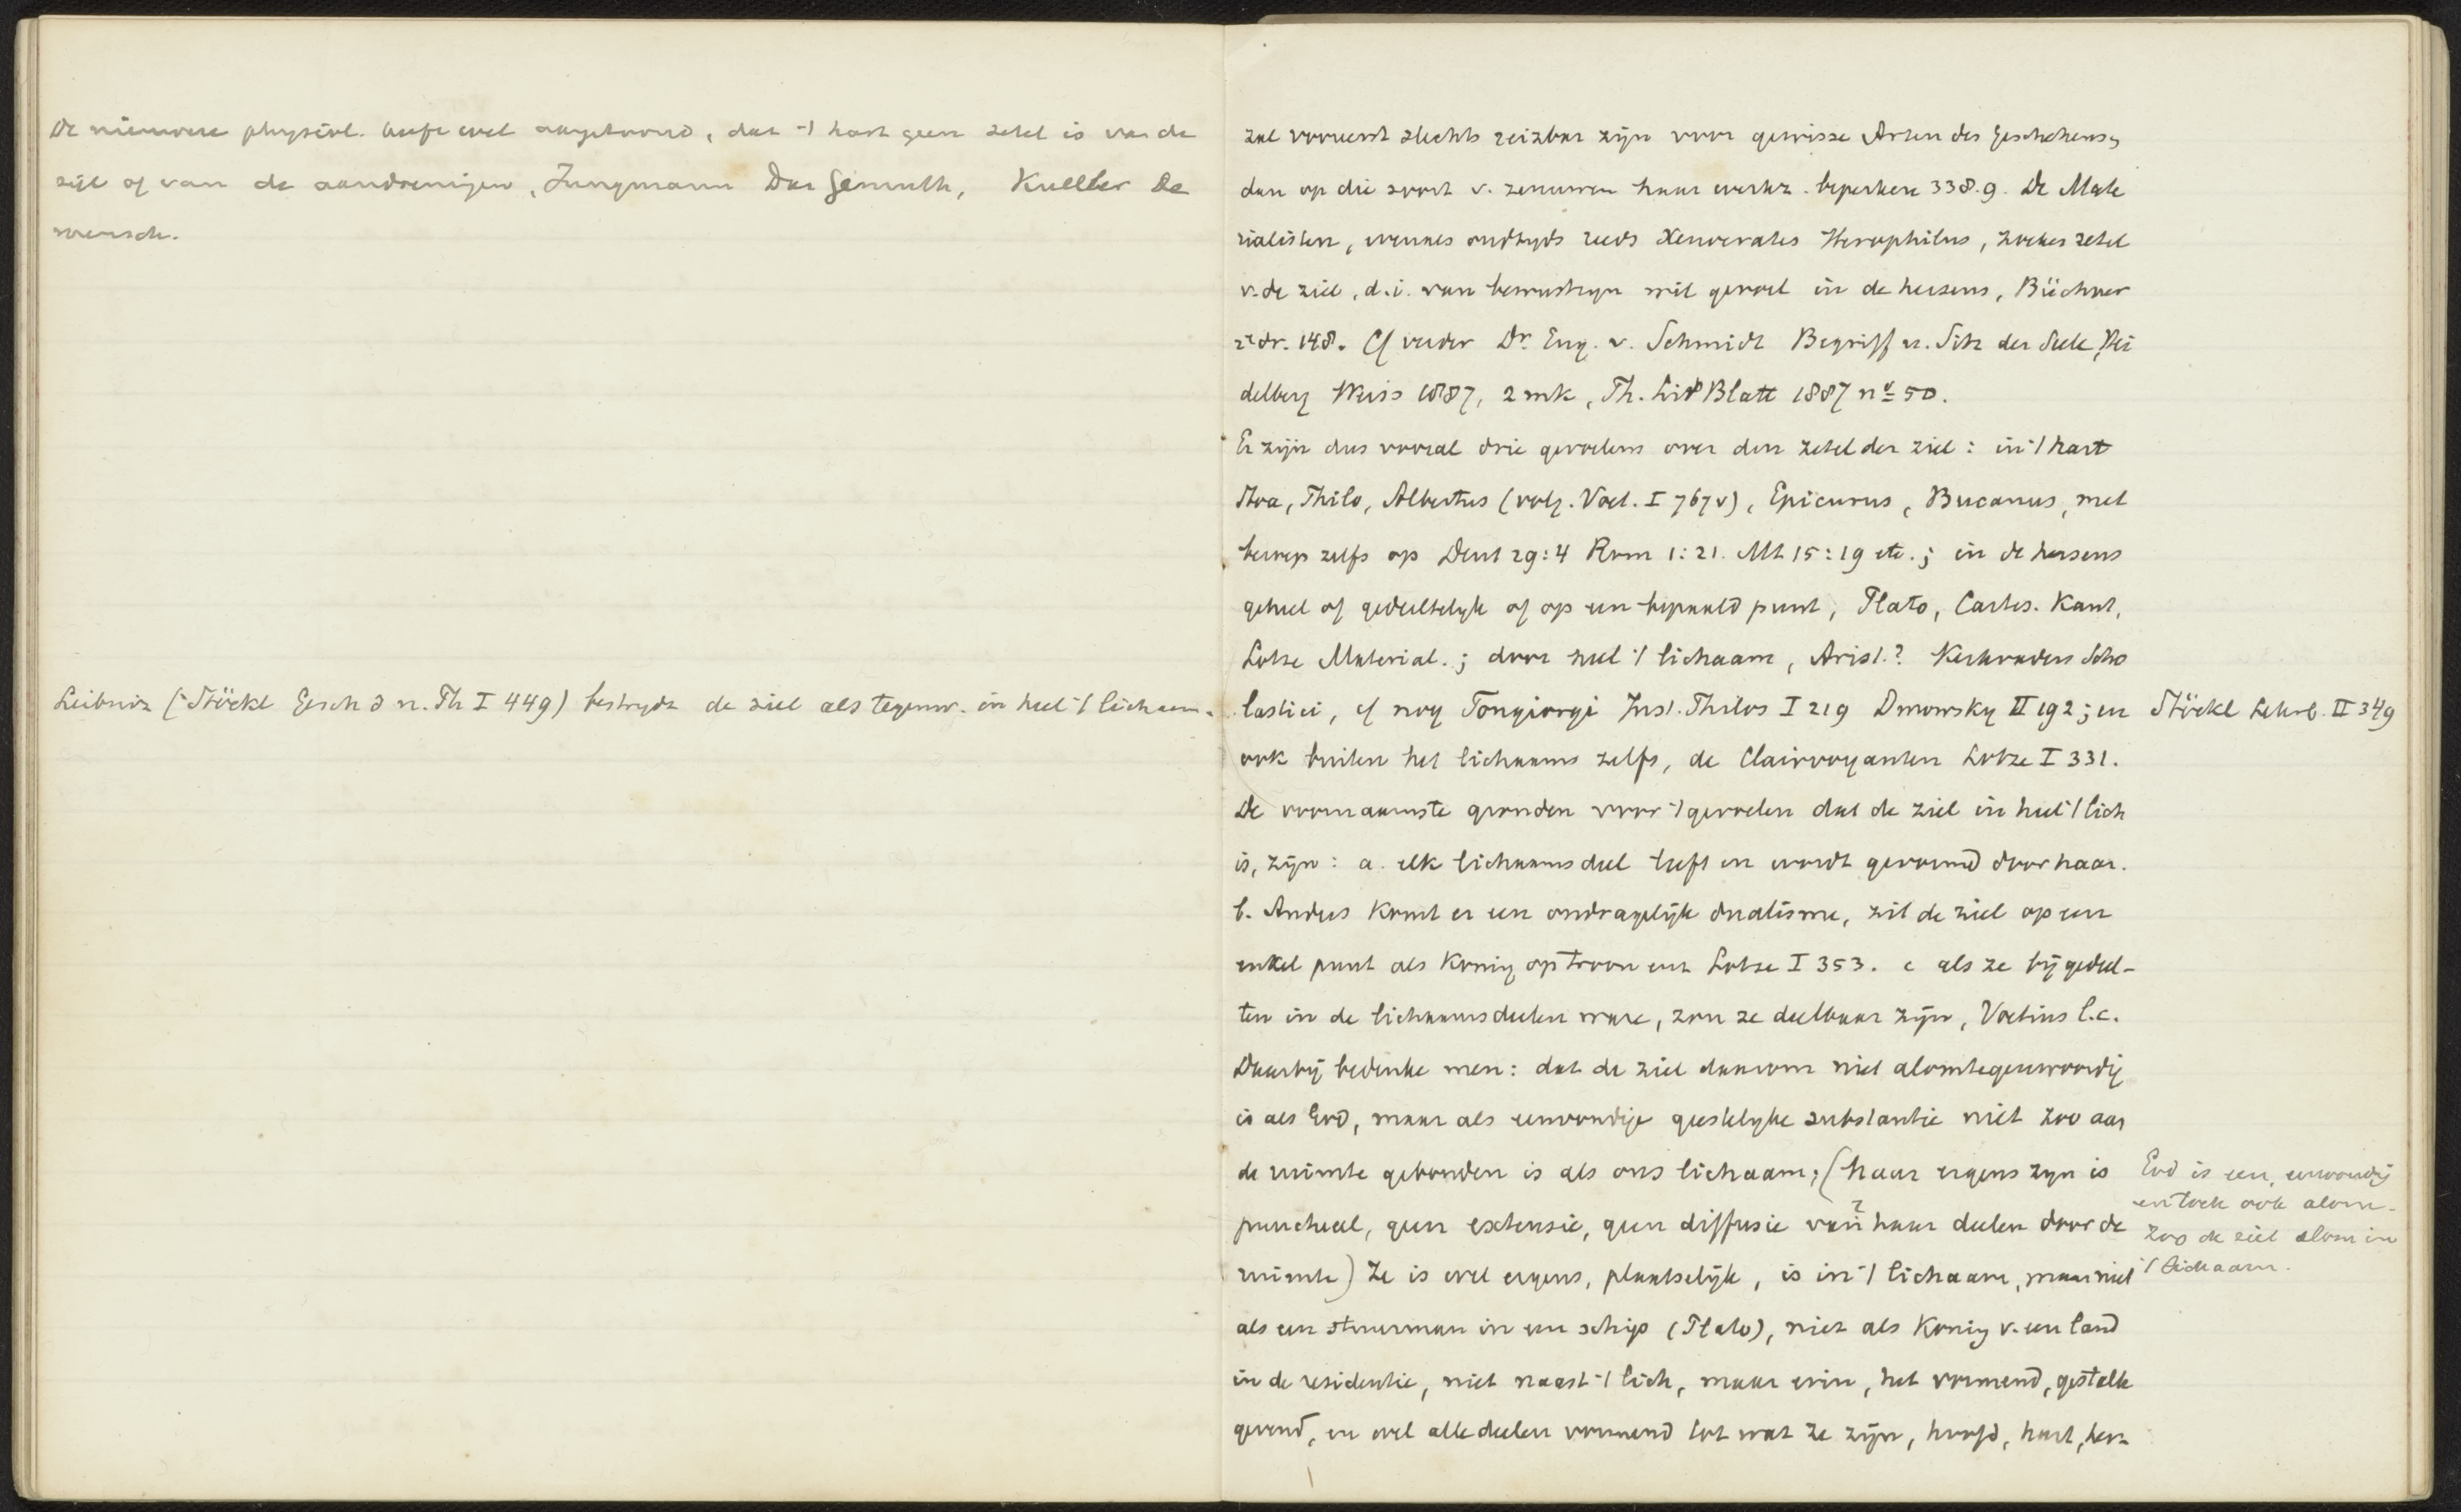 De nieuwere physiol. heeft wel aangetoond, dat 't hart geen zetel is van de
ziel of van de aandoeningen, Jungmann Das Gemuth, Kneller De
mensch.
Leibniz (Stöckl Gesch d n. Ph I 449) bestrydt de ziel als tegenw. in heel 't lichaam.
zal vooreerst slechts reizbar zijn voor gewisse Arten des Geschehens,
dan op die soort v. zenuwen haar werkz. beperken 338.9. De Mate
rialisten, evenals oudtyds reeds Xenocrates Herophilus, zoeken zetel
v. de ziel, d.i. van bewustzyn wil gevoel in de hersens, Büchner
2e dr. 148. Cf verder Dr. Eug. v. Schmidt Begriff u. Sitz der Seele, Hei
delberg Weiss 1887, 2 mk, Th. Lit Blatt 1887 no 50.
Er zijn dus vooral drie gevoelens over den zetel der ziel: in 't hart
Stoa, Philo, Albertus (volg. Voet. I 767 v), Epicurus, Bucanus, met
beroep zelfs op Deut 29:4 Rom 1:21. Mt 15:19 etc.; in de hersens
geheel of gedeeltelyk of op een bepaald punt, Plato, Cartes. Kant,
Lotze Material.; door heel 't lichaam, Arist.? Kerkvaders Scho
lastici, cf nog Tongiorgi Inst. Philos I 219 Dmowsky II 192; en
Stöckl Lehrb. II 349
ook buiten het lichaam zelfs, de Clairvoyanten Lotze I 331.
De voornaamste gronden voor 't gevoelen dat de ziel in heel 't lich
is, zijn: a. elk lichaamsdeel leeft en wordt gevormd door haar.
b. Anders komt er een ondragelijk dualisme, zit de ziel op een
enkel punt als Koning op troon enz Lotze I 353. c als ze bij gedeel-
ten in de lichaamsdeelen ware, zou ze deelbaar zijn, Voetius l.c.
Daarbij bedenke men: dat de ziel daarom niet alomtegenwoordig
is als God, maar als eenvoudige geestelyke substantie niet zoo aan
de ruimte gebonden is als ons lichaam; (haar ergens zyn is
puncheel, geen extensie, geen diffusie van haar deelen door de
ruimte) Ze is wel ergens, plaatselijk, is in 't lichaam, maar niet
God is een, eenvoudig
en toch ook alom-
zoo de ziel alom in
't lichaam.
als een stuurman in een schip (Plato), niet als Koning v. een land
in de residentie, niet naast 't lich, maar erin, het vormend, gestalte
gevend, en wel alle deelen vormend tot wat ze zijn, hoofd, hart, her-